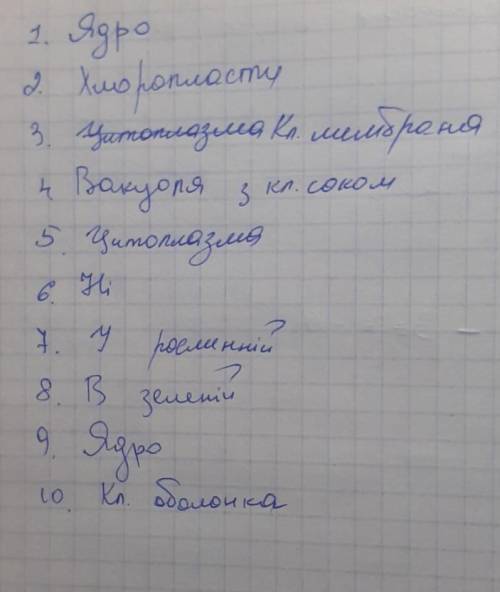 1. Ядро
2. Хлоропласти
3. Цитоплазма Кл. мембрана
4 Вакуоля з кл. соком
5. Цитоплазма
6. Ні
7. У рослинній
8. В зеленій
9. Ядро
10. Кл. оболонка